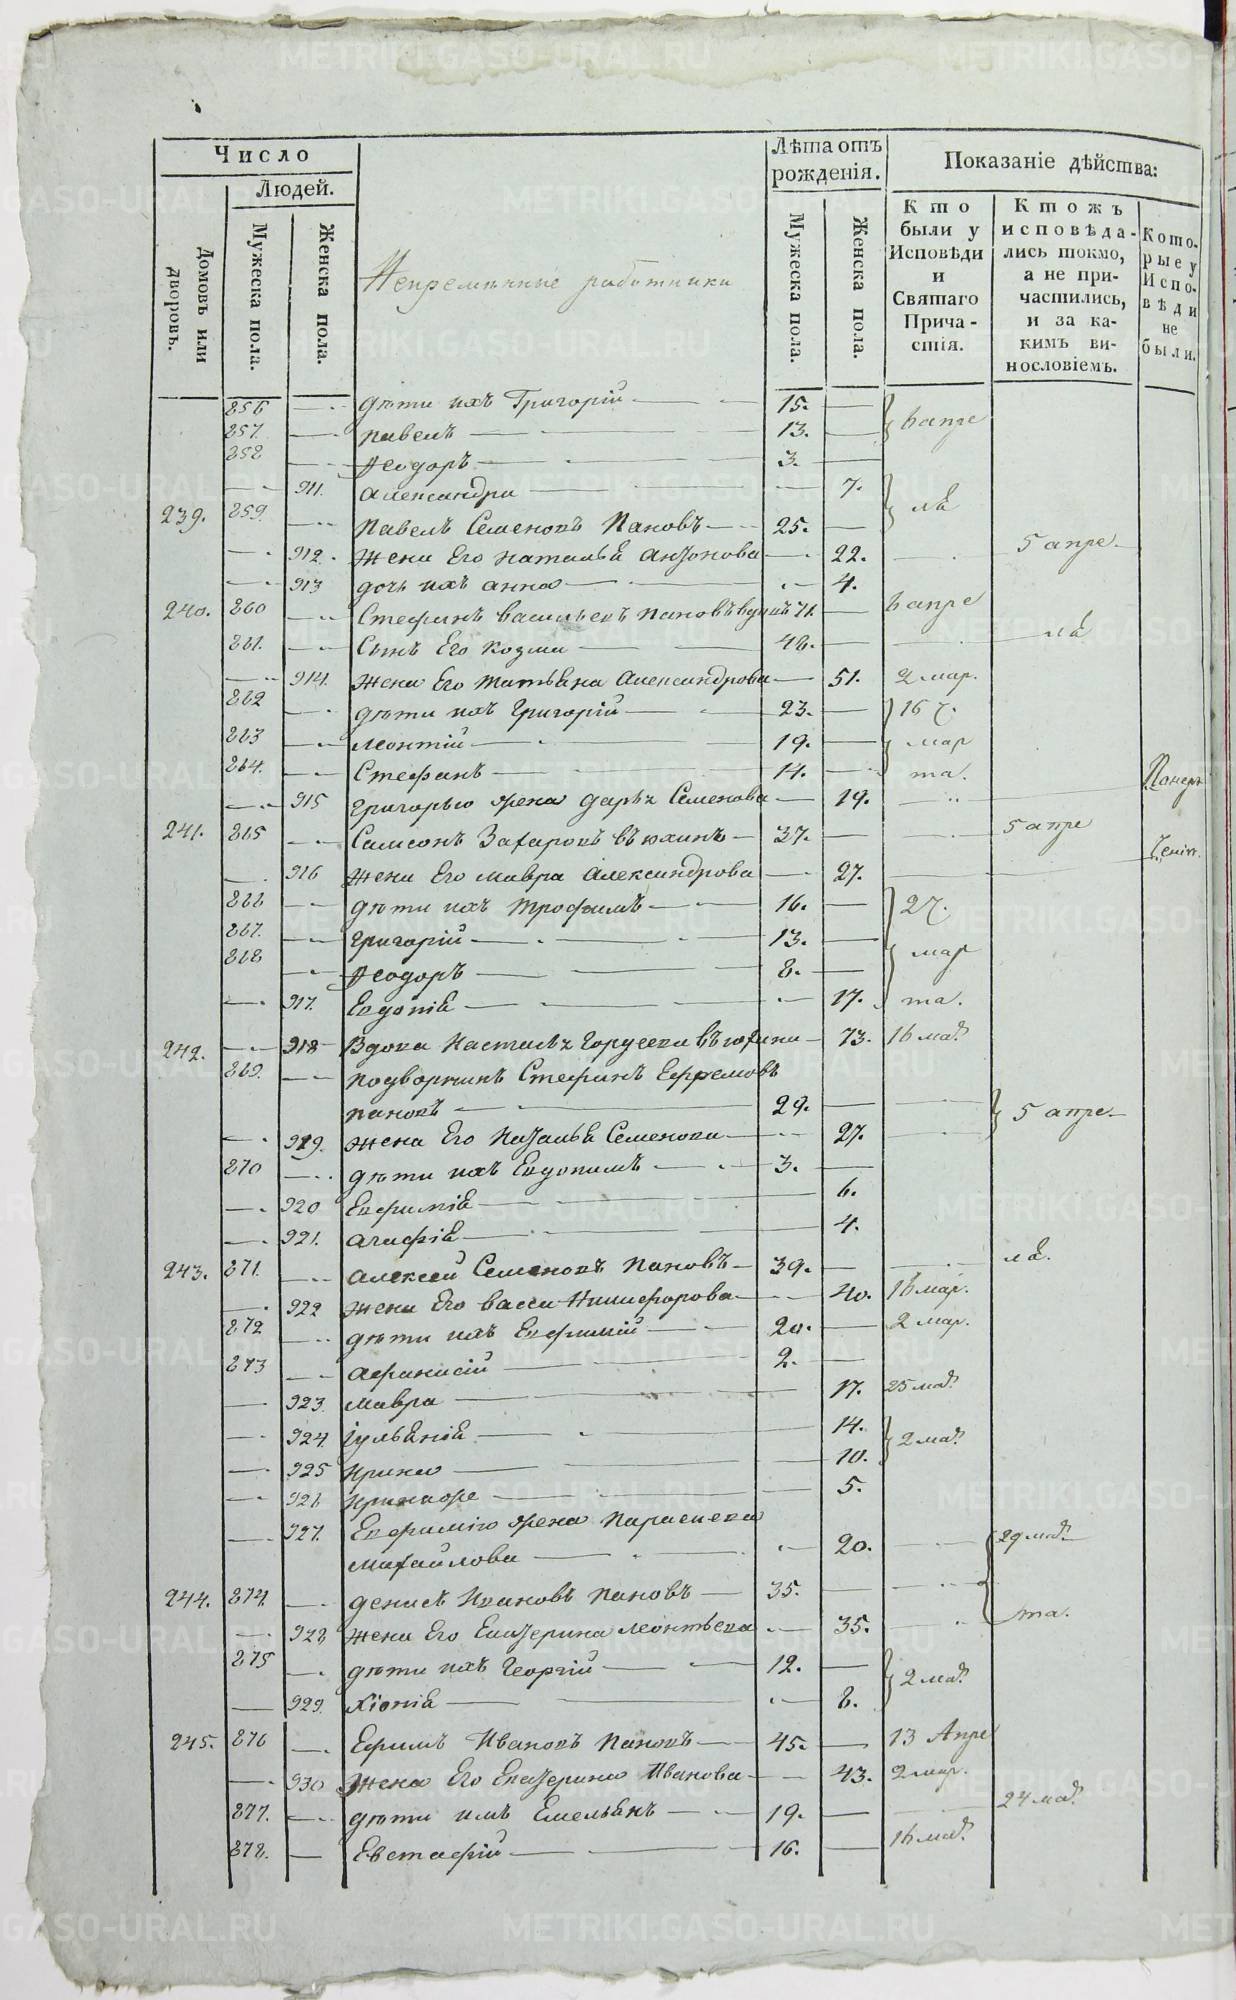 Число
Людей.
Домовъ или дворовъ.
Мужеска пола.
Женска пола.
Непременные работники
Лѣта отъ рожденія.
Мужеска пола.
Женска пола.
Показаніе дѣйства:
Кто были у Исповѣди и Святаго Причастія.
Ктожъ исповѣдались токмо, а не причастились, и за какимъ винословіемъ.
Которые у Исповѣди не были.
856 дѣти ихъ Григорій 15. 6 апре
857. павелъ 13.
858 Ѳеодоръ 3.
911. александра 7.
239. 859. павелъ Семеновъ Пановъ 25.
912. жена Его наталья 22. 5 апре.
913 дочь ихъ анна 4.
240. 860 Стефанъ васильевъ пановъ 71. 6 апре
861. Сынъ Его козма 48.
914. жена Его татьяна александрова 51. 2 мар.
862 дѣти ихъ григорій 23. 16
863 леонтій 19. мар
864. Стефанъ 14. та.
915 григорью жена дарья Семенова 19.
241. 865 Самсонъ Захаровъ вьюхинъ 37. 5 апре
916 жена Его мавра александрова 27.
866 дѣти ихъ трофимъ 16. 27.
867. григорій 13. мар
868 Ѳеодоръ 8.
917. Евдокія 17. та.
242. 918 Вдова 73. 16 мар
869. подворникъ Стефанъ Ефремовъ
пановъ 29. 5 апре.
919. жена Его Наталья Семенова 27.
870 дѣти ихъ Евдокимъ 3.
920 Евфимія 6.
921. агафія 4.
243. 871. алексей Семеновъ пановъ 39.
922 жена Его васса Никифорова 40. 16 мар.
872 дѣти ихъ Евфимій 20. 2 мар.
873 афанасій 2.
923. мавра 17. 25 мар
924. іульянія 14. 2 мар
925 ирина 10.
926 ирина же 5.
927. Евфимію жена Параскева
михайлова 20. 29 мар
244. 874. денисъ Ивановъ пановъ 35.
928 жена Его Екатерина леонтьева 35. та.
875 дѣти ихъ Георгій 12. 2 мар
929. Хіонія 8.
245. 876 Ефимъ Ивановъ пановъ 45. 13 Апре
930 жена Его Екатерина Иванова 43. 2 мар.
877. дѣти ихъ Емельянъ 19. 24 мар
878. Евстафій 16. 16 мар
METRIKI.GASO-URAL.RU